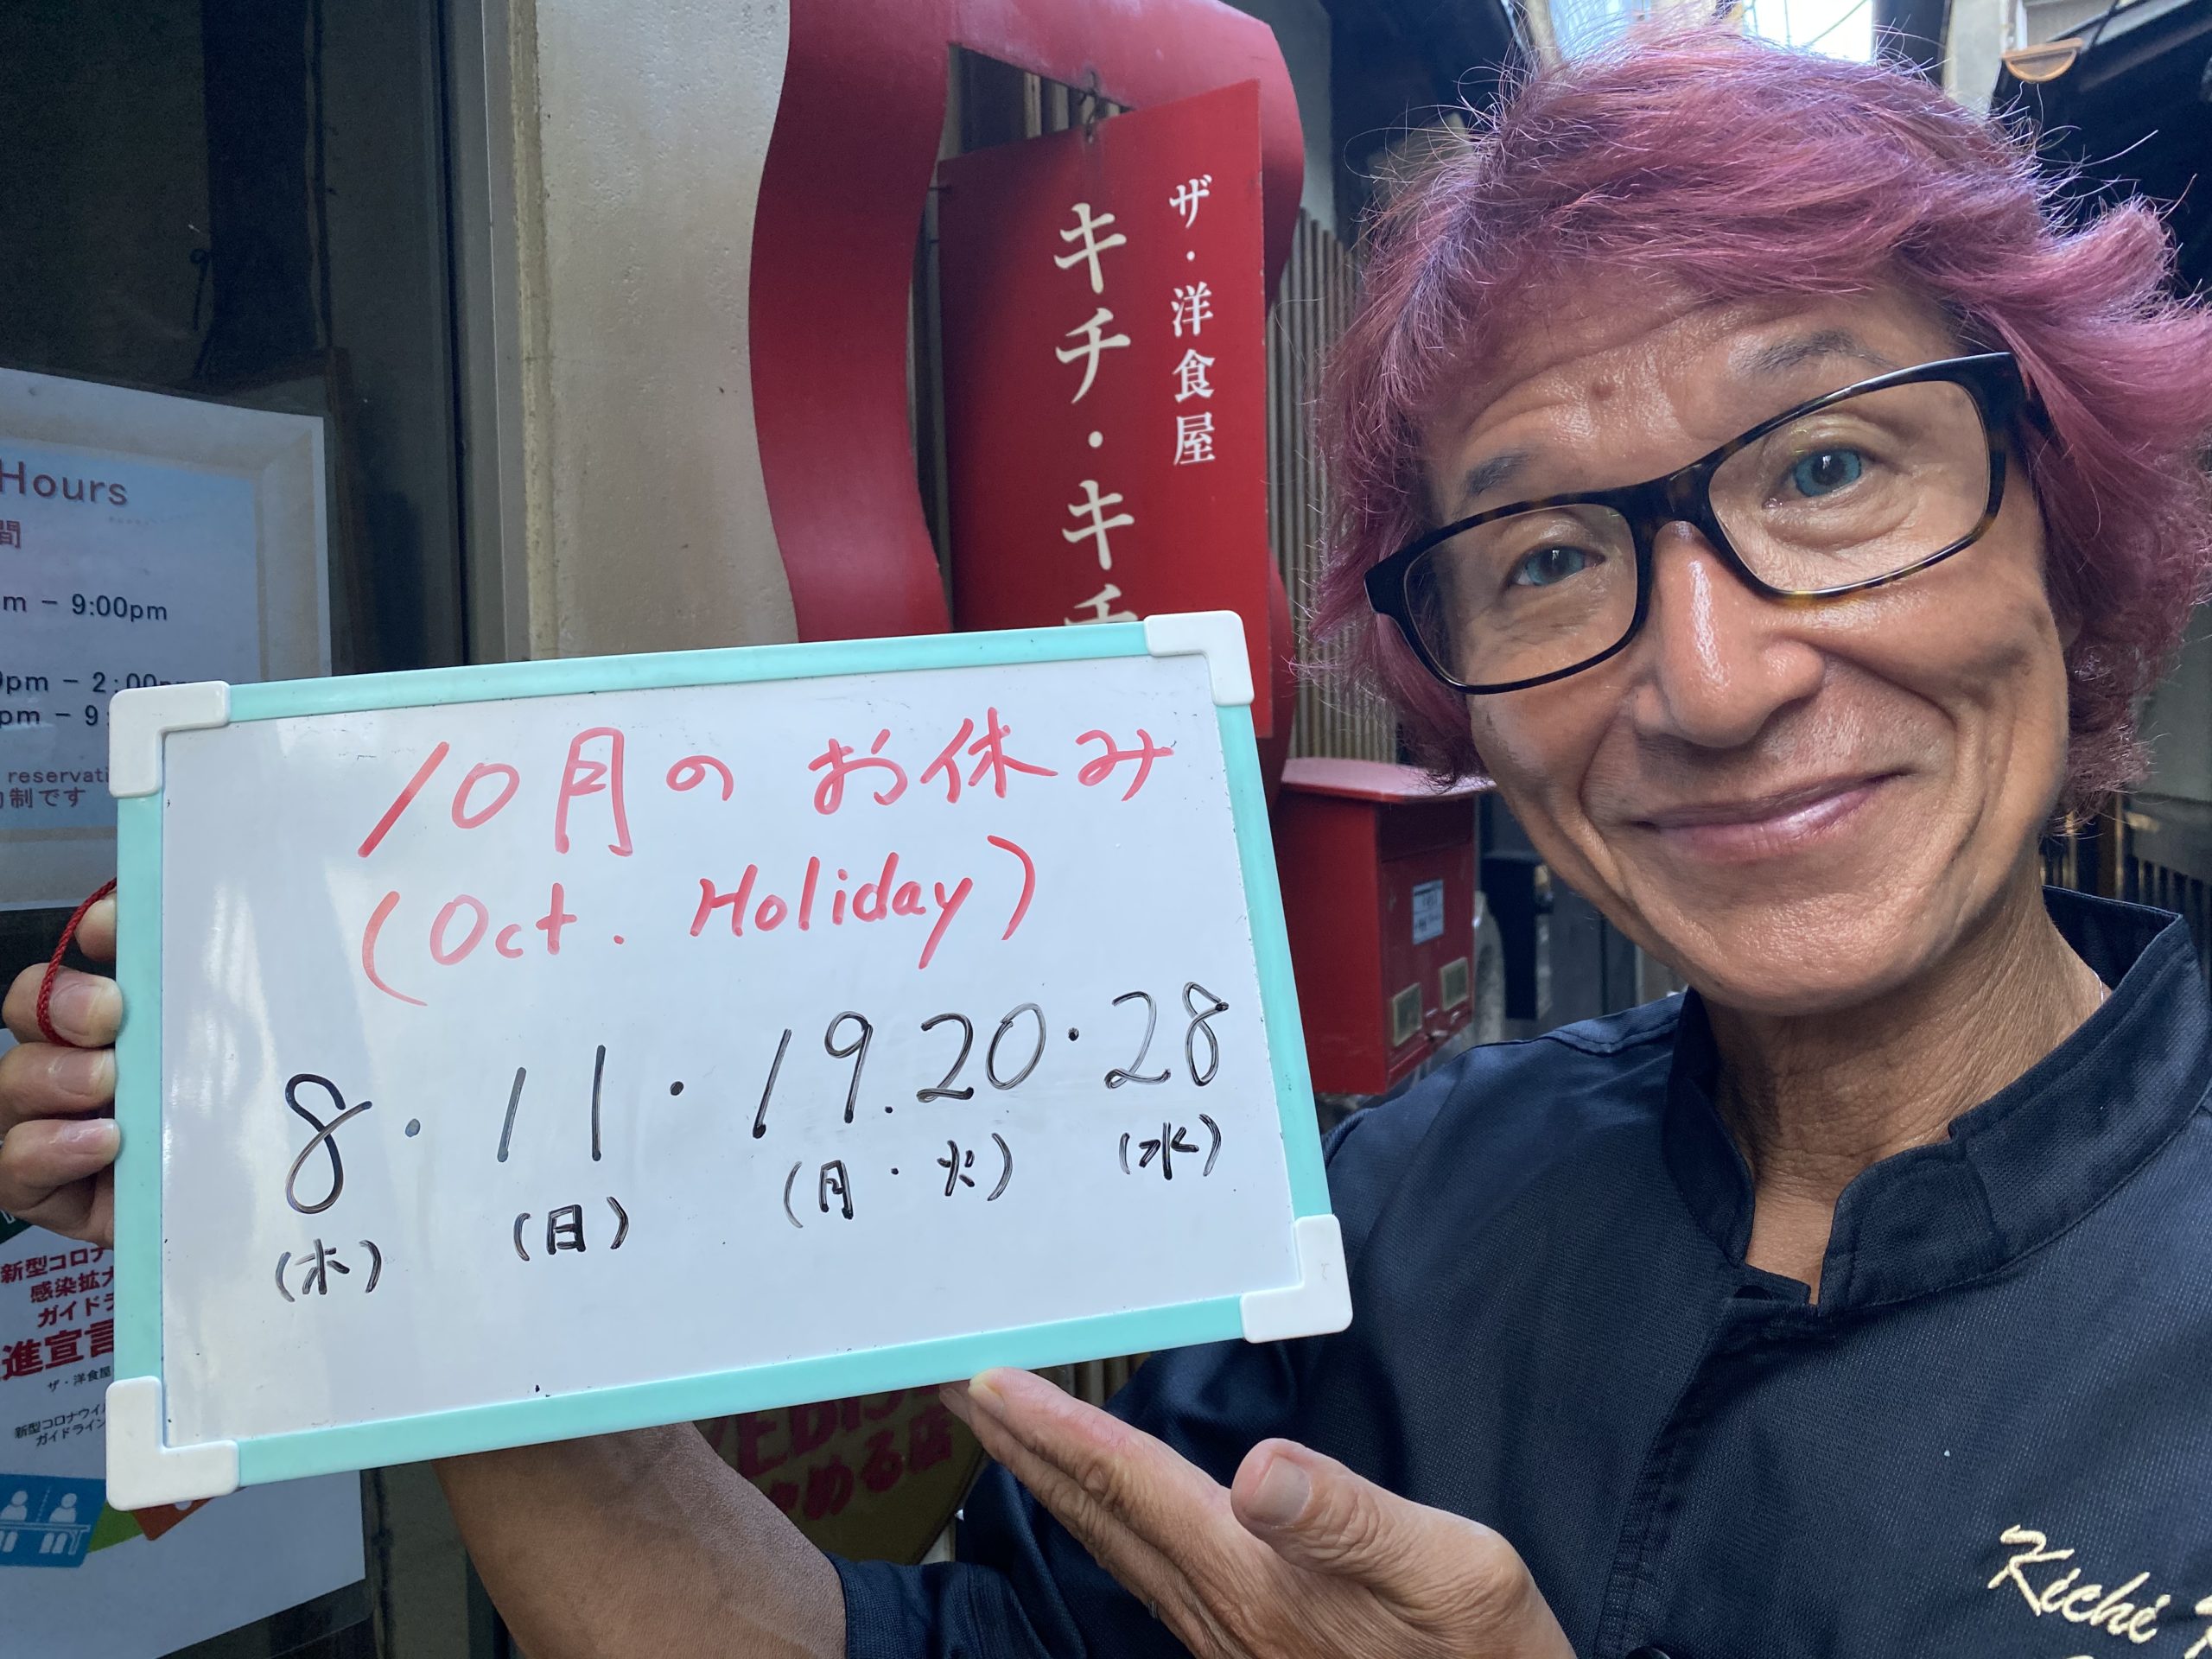 ザ・洋食屋
キチ・キチ
Hours
間
m - 9:00pm
0pm - 2:00pm
pm - 9:
reservati
制です
10月のお休み
(Oct. Holiday)
8・11・19.20・28
(木) (日) (月・火) (水)
新型コロナ
感染拡大
ガイドラ
進宣言
ザ・洋食屋
新型コロナウイル
ガイドライン
める店
Kichi